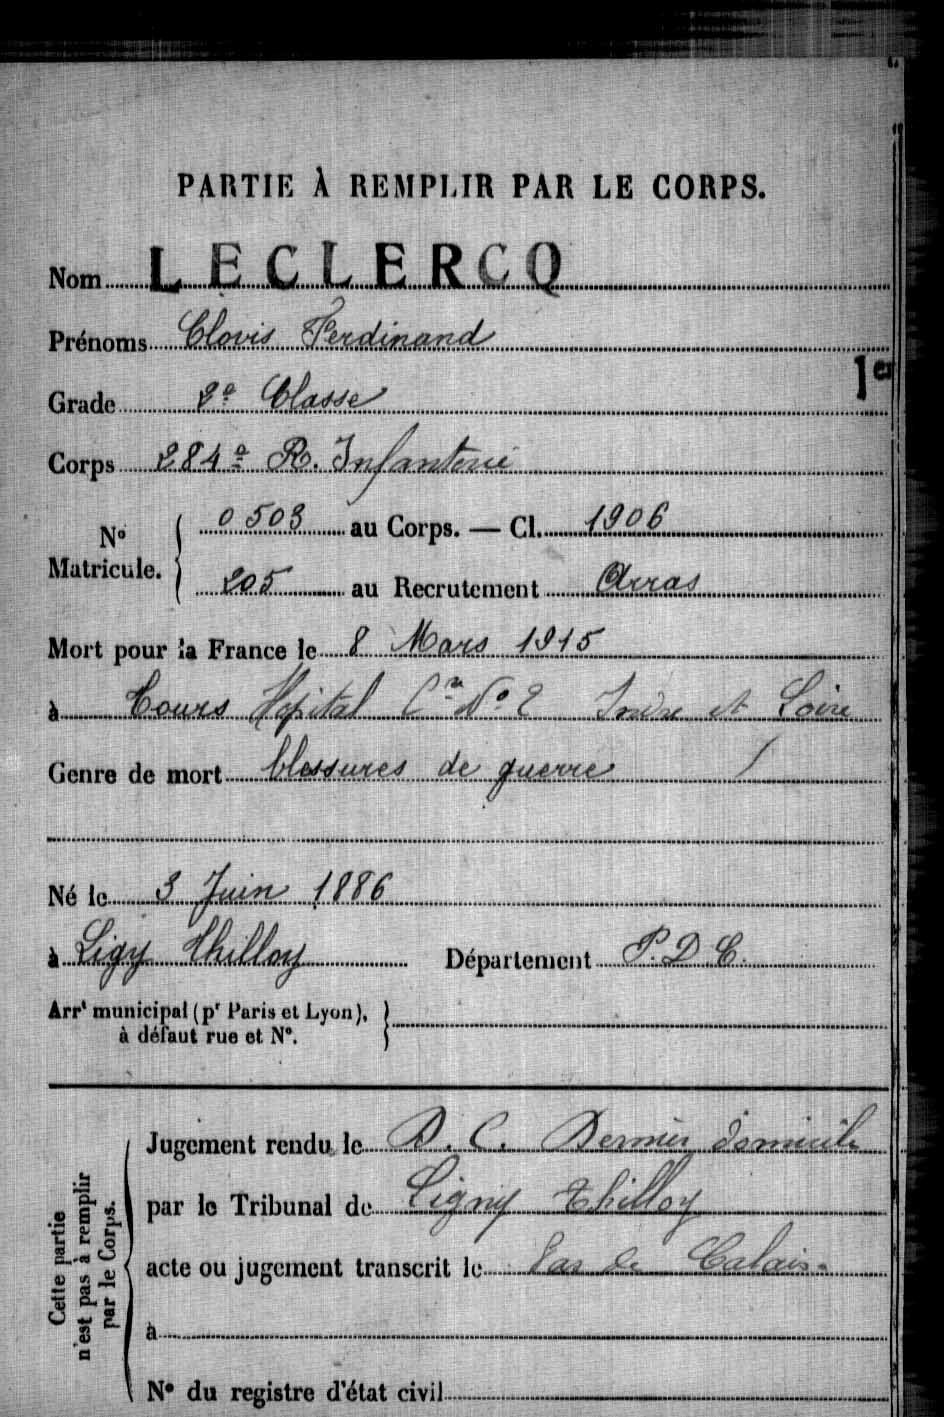 PARTIE À REMPLIR PAR LE CORPS.
Nom LECLERCQ
Prénoms Clovis Ferdinand
1er
Grade 2e Classe
Corps 284e R. Infanterie
No Matricule. { 0503 au Corps. — Cl. 1906
205 au Recrutement Arras
Mort pour la France le 8 Mars 1915
à Tours Hopital Cre No 2 Indre et Loire
Genre de mort blessures de guerre /
Né le 3 Juin 1886
à Ligy Thilloy Département P.D.C.
Arrt municipal (pr Paris et Lyon), à défaut rue et No. }
Cette partie n'est pas à remplir par le Corps. {
Jugement rendu le D. C. Dernier domicile
par le Tribunal de Ligny Thilloy
acte ou jugement transcrit le Pas de Calais.
à
No du registre d'état civil